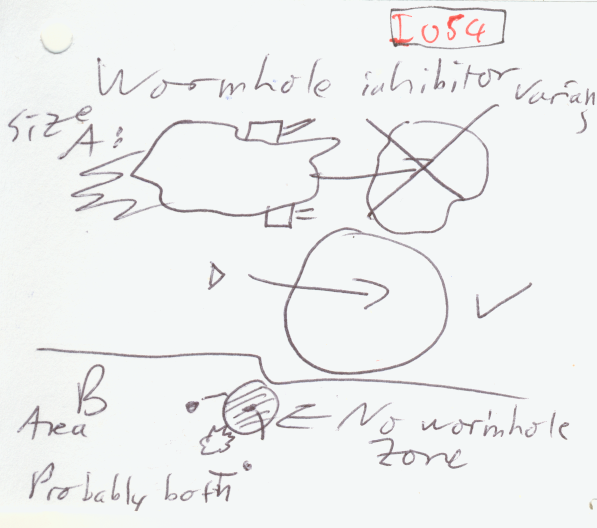 I054
Wormhole inhibitor varians
Size
A:
B
Area
No wormhole
zone
Probably both